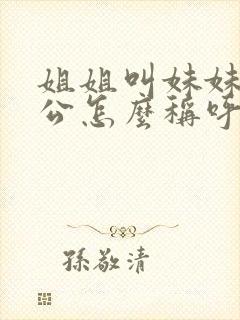 姐姐叫妹妹
公怎麼稱呼
孫敬清